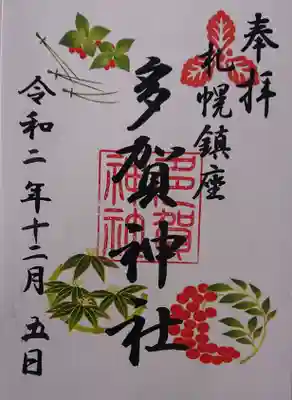 奉拝
札幌鎮座
多賀神社
多賀神社
令和二年十二月五日